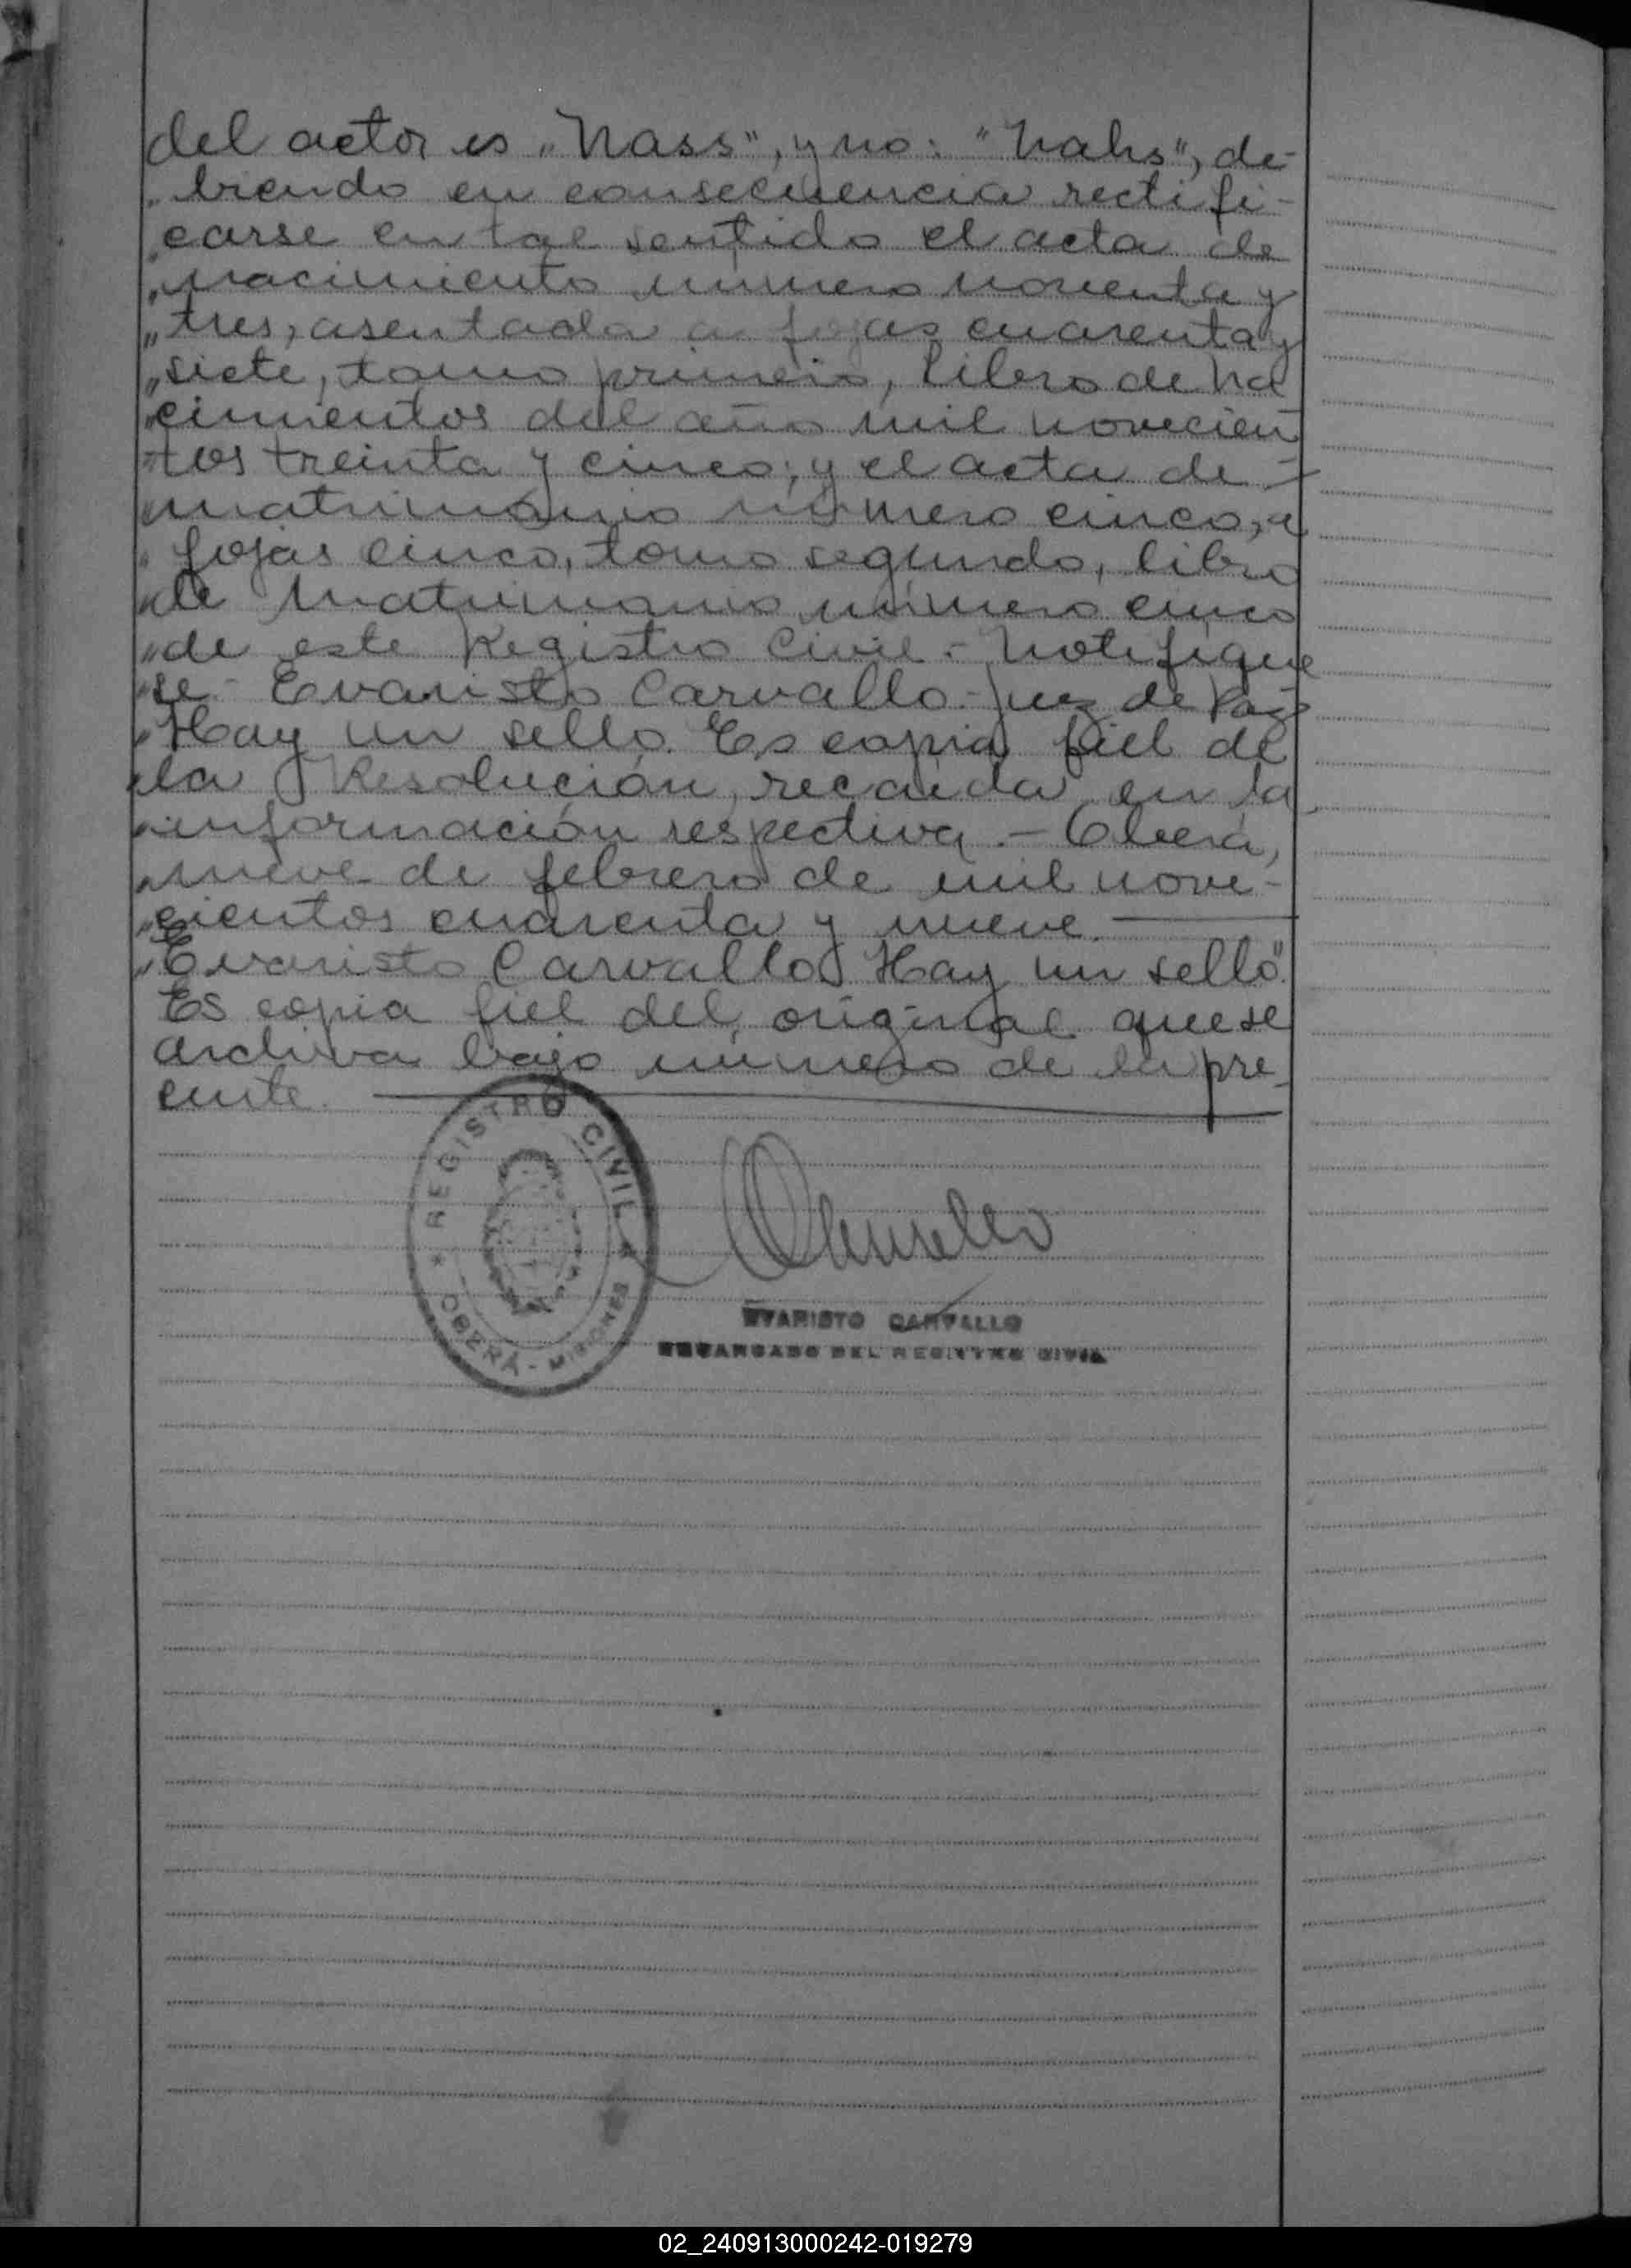 del actor es „Nass", y no: "Nahs", de-
„biendo en consecuencia rectifi-
„carse en tal sentido el acta de
„nacimiento número noventa y
„tres, asentada a fojas cuarenta y
„siete, tomo primero, Libro de Na
„cimientos del año mil novecien
„tos treinta y cinco; y el acta de -
„matrimonio número cinco, a
„fojas cinco, tomo segundo, libro
„de Matrimonio número cinco
„de este Registro Civil.- Notifíque
„se.- Evaristo Carvallo.- Juez de Paz
„Hay un sello. Es copia fiel de
„la Resolución, recaída en la
„información respectiva.- Oberá,
„nueve de febrero de mil nove-
„cientos cuarenta y nueve.
„Evaristo Carvallo Hay un sello".
Es copia fiel del original que se
archiva bajo número de la pre
ente.
REGISTRO CIVIL
OBERÁ - MISIONES
EVARISTO CARVALLO
ENCARGADO DEL REGISTRO CIVIL
02_240913000242-019279